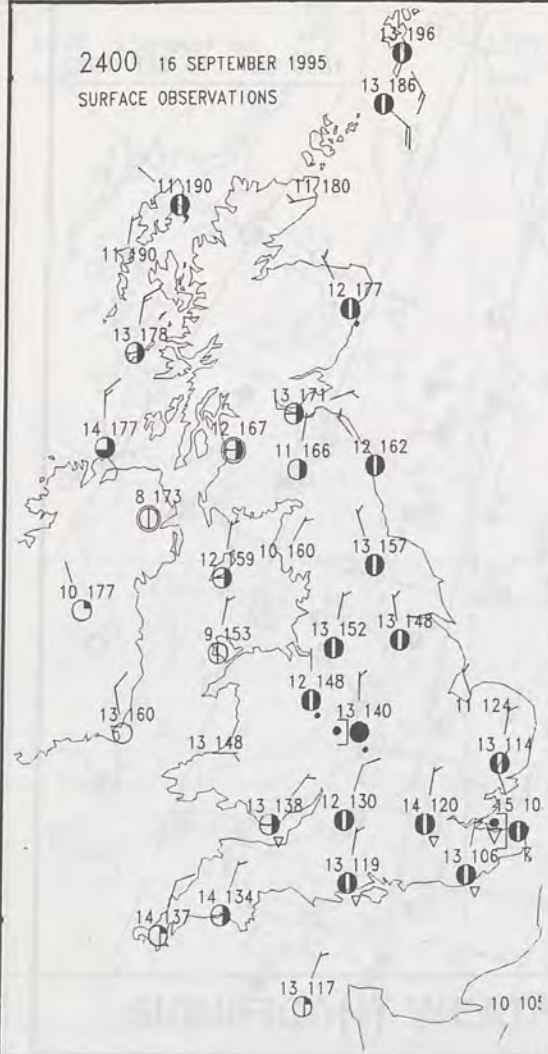 13 196
2400 16 SEPTEMBER 1995
SURFACE OBSERVATIONS
13 186
11 190
11 180
11 190
12 177
13 178
13 171
14 177
12 167
11 166
12 162
8 173
12 159
10 160
13 157
10 177
9 153
13 152
13 148
12 148
13 140
11 124
13 160
13 148
13 114
13 138
12 130
14 120
15 10
13 119
13 106
14 137
14 134
13 117
10 105